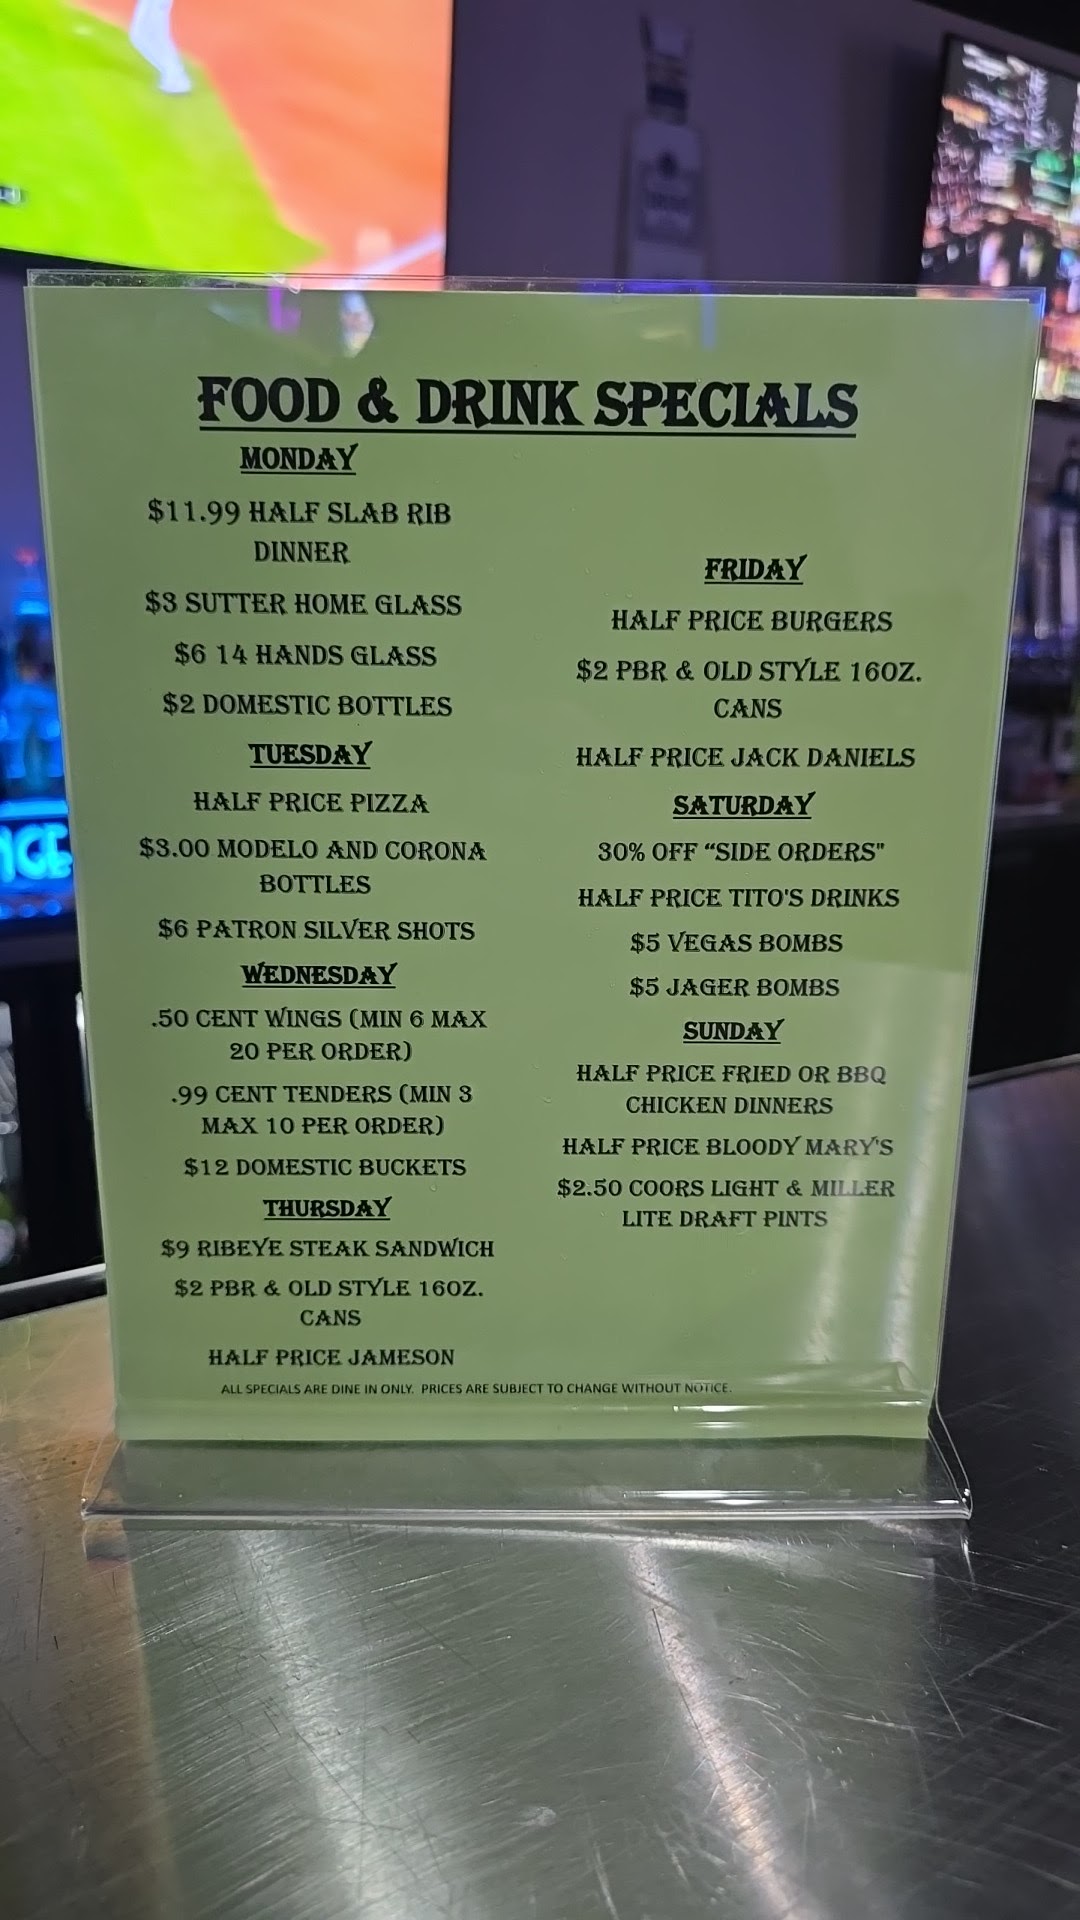 FOOD & DRINK SPECIALS
MONDAY
$11.99 HALF SLAB RIB
DINNER
$3 SUTTER HOME GLASS
$6 14 HANDS GLASS
$2 DOMESTIC BOTTLES
TUESDAY
HALF PRICE PIZZA
$3.00 MODELO AND CORONA
BOTTLES
$6 PATRON SILVER SHOTS
WEDNESDAY
.50 CENT WINGS (MIN 6 MAX
20 PER ORDER)
.99 CENT TENDERS (MIN 3
MAX 10 PER ORDER)
$12 DOMESTIC BUCKETS
THURSDAY
$9 RIBEYE STEAK SANDWICH
$2 PBR & OLD STYLE 16OZ.
CANS
HALF PRICE JAMESON
FRIDAY
HALF PRICE BURGERS
$2 PBR & OLD STYLE 16OZ.
CANS
HALF PRICE JACK DANIELS
SATURDAY
30% OFF “SIDE ORDERS"
HALF PRICE TITO'S DRINKS
$5 VEGAS BOMBS
$5 JAGER BOMBS
SUNDAY
HALF PRICE FRIED OR BBQ
CHICKEN DINNERS
HALF PRICE BLOODY MARY'S
$2.50 COORS LIGHT & MILLER
LITE DRAFT PINTS
ALL SPECIALS ARE DINE IN ONLY. PRICES ARE SUBJECT TO CHANGE WITHOUT NOTICE.